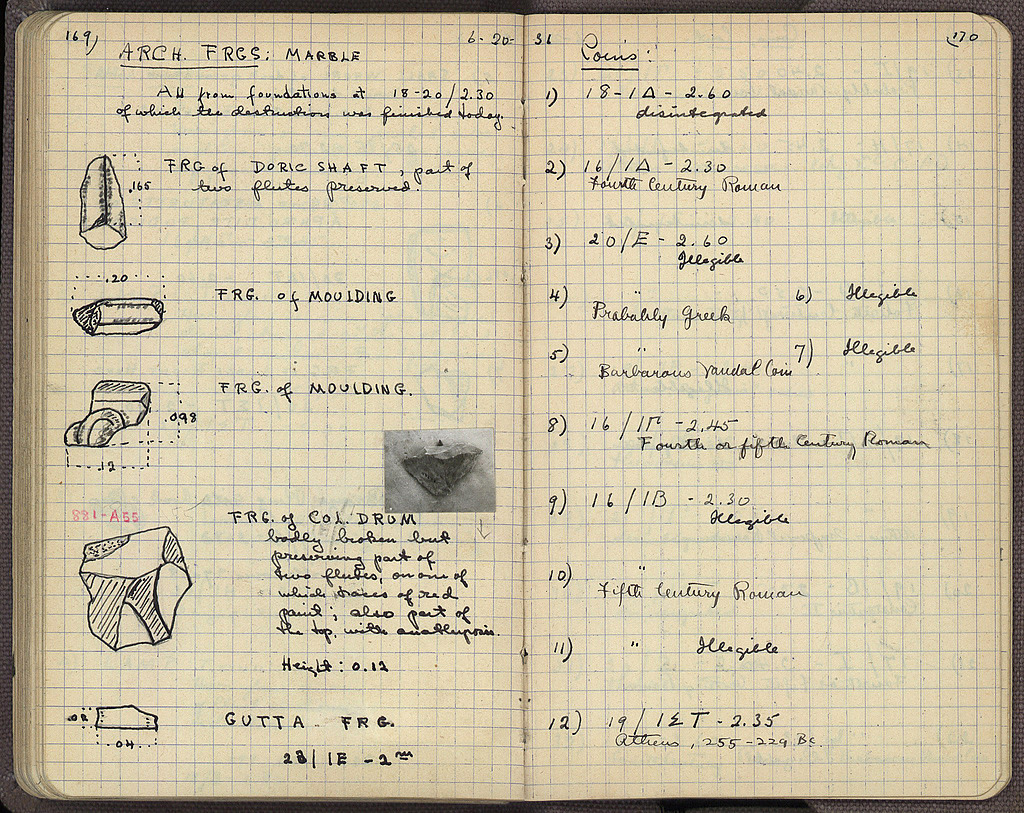 169)
6-20-36
ARCH. FRGS: MARBLE
All from foundations at 18-20/2.30
of which the destruction was finished today.
FRG of DORIC SHAFT, part of
two flutes preserved.
.165
.20
FRG. of MOULDING
FRG. of MOULDING.
.098
.12
881-A55
FRG. of COL. DRUM
badly broken but
preserving part of
two flutes, on one of
which traces of red
paint; also part of
the top, with anathyrosis.
Height: 0.12
.02
.04
GUTTA FRG.
2B/IE - 2m
(170
Coins:
1) 18-1Δ - 2.60
disintegrated
2) 16/1Δ - 2.30
Fourth Century Roman
3) 20/E - 2.60
Illegible
4) "
Probably Greek
5) "
Barbarous Vandal Coin
6) Illegible
7) Illegible
8) 16/1Γ - 2.45
Fourth or fifth Century Roman
9) 16/1B - 2.30
Illegible
10) "
Fifth Century Roman
11) " Illegible
12) 19/1ΣT - 2.35
Athens, 255-229 Bc.